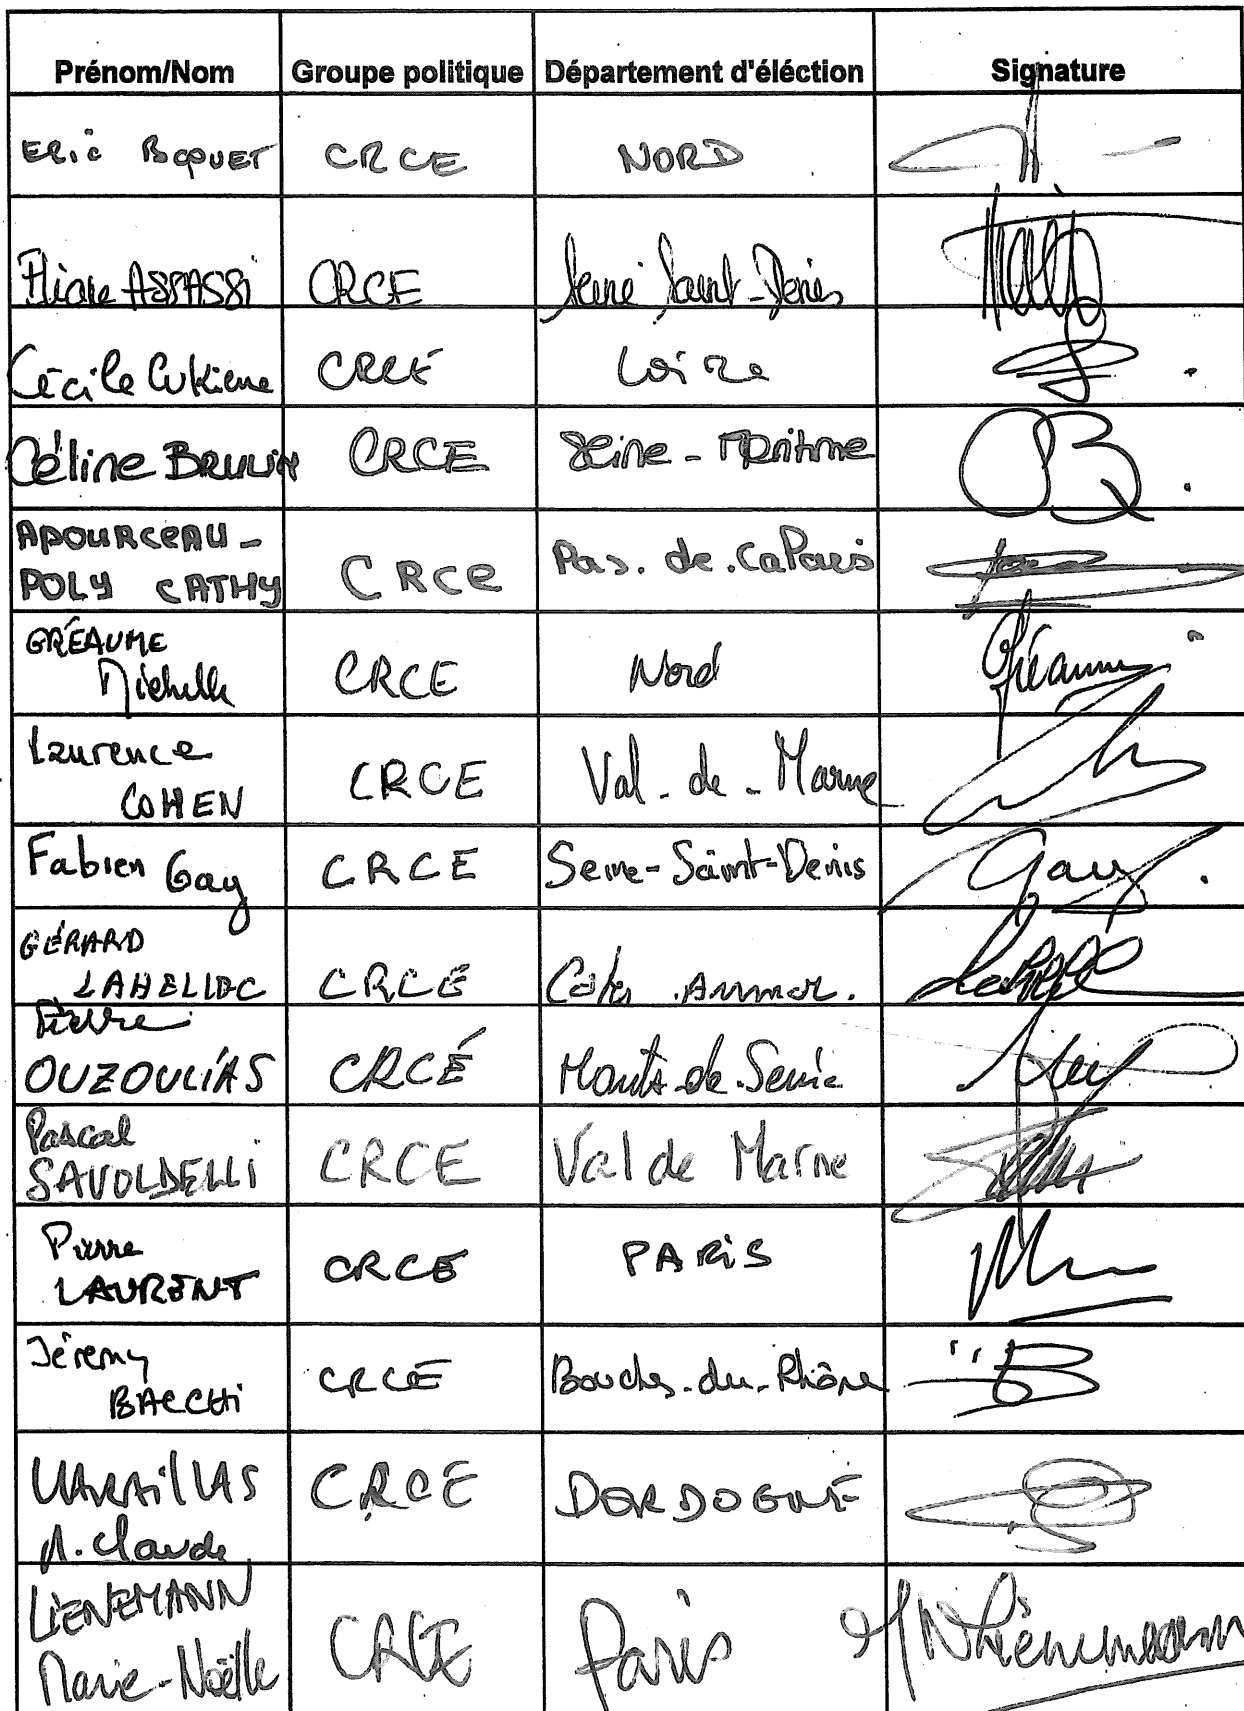 Prénom/Nom Groupe politique Département d'éléction Signature
Eric Bocquet CRCE NORD
Eliane ASSASSI CRCE Seine Saint-Denis
Cécile Cukierne CRCE Loire
Céline BRULIN CRCE Seine-Maritime
APOURCEAU-
POLY CATHY CRCe Pas.de.Calais
GRÉAUME
Michelle CRCE Nord Gréaume
Laurence
COHEN CRCE Val-de-Marne
Fabien Gay CRCE Seine-Saint-Denis Gay
GÉRARD
LAHELLEC CRCE Cotes.Armor.
Pierre
OUZOULIAS CRCÉ Hauts-de-Seine
Pascal
SAVOLDELLI CRCE Val de Marne
Pierre
LAURENT CRCE PARIS
Jérémy
BACCHI CRCE Bouches-du-Rhône
VARAILLAS
M.Claude CRCE DORDOGNE
LIENEMANN
Marie-Noëlle CRCE Paris MNLienemann